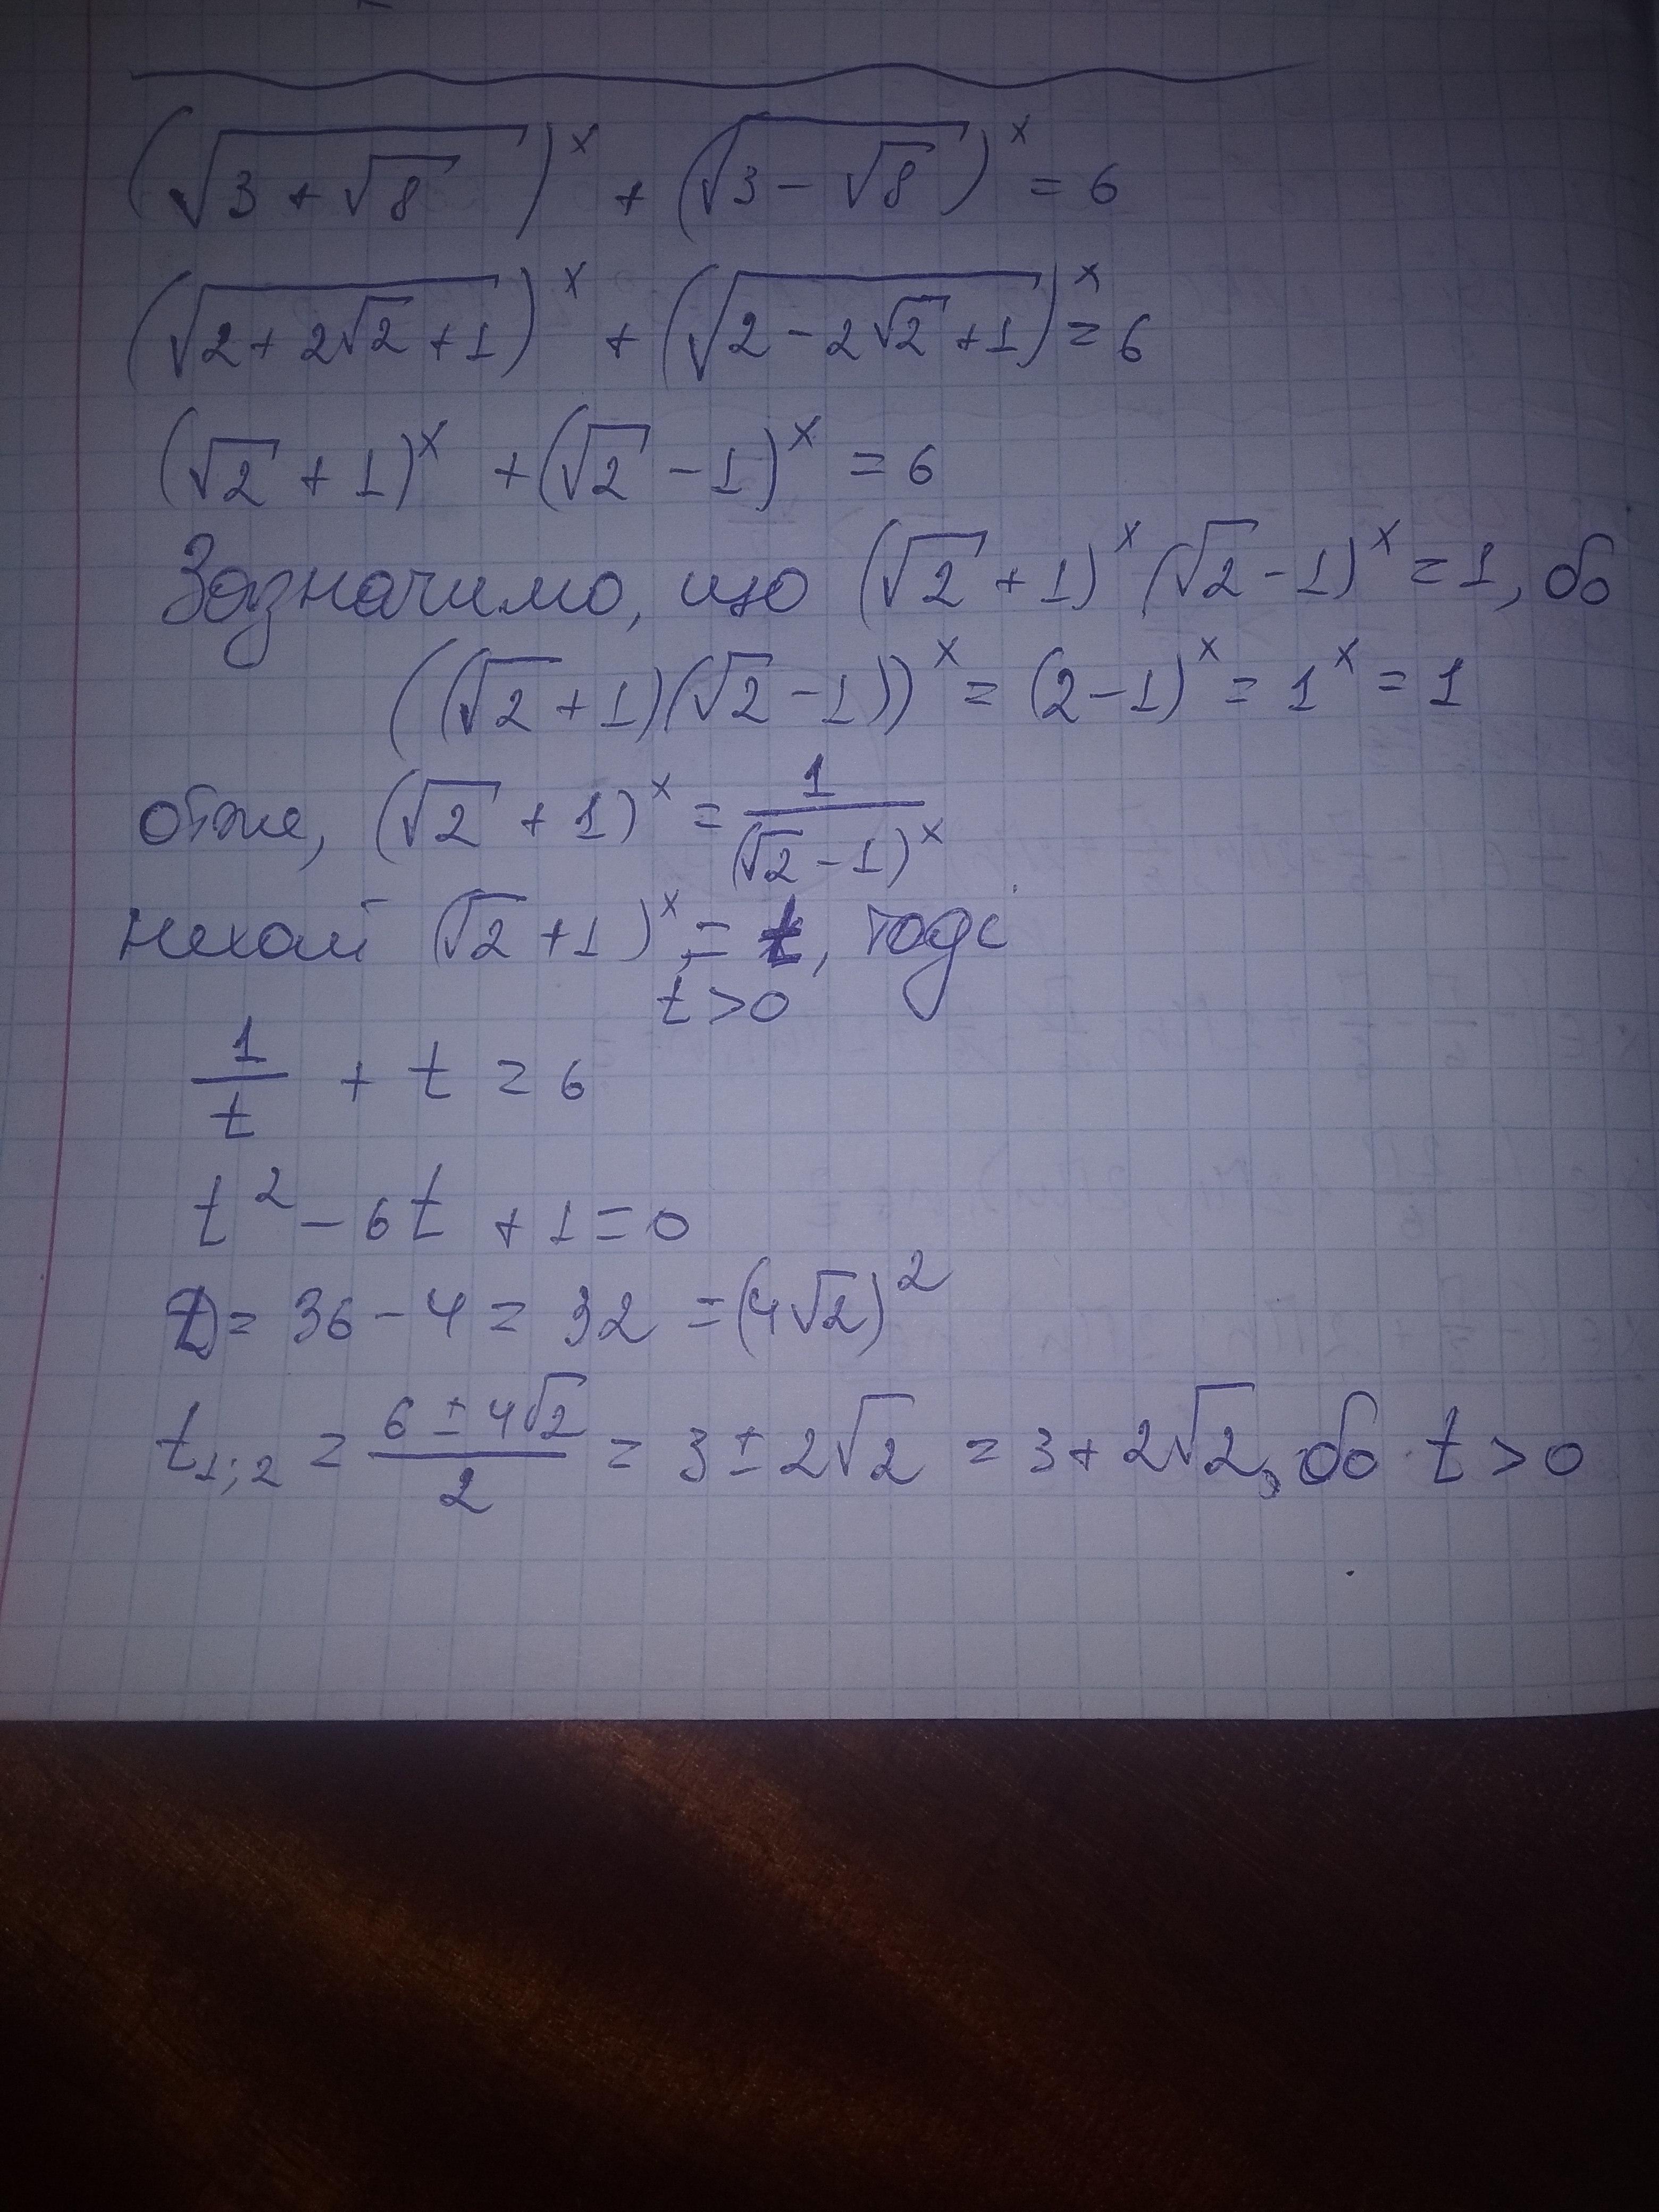 (√(3 + √8))^x + (√(3 - √8))^x = 6
(√(2 + 2√2 + 1))^x + (√(2 - 2√2 + 1))^x = 6
(√2 + 1)^x + (√2 - 1)^x = 6
Зазначимо, що (√2 + 1)^x (√2 - 1)^x = 1, бо
((√2 + 1)(√2 - 1))^x = (2 - 1)^x = 1^x = 1
отже, (√2 + 1)^x = 1/(√2 - 1)^x
нехай (√2 + 1)^x = t, тоді
t > 0
1/t + t = 6
t² - 6t + 1 = 0
D = 36 - 4 = 32 = (4√2)²
t₁;₂ = (6 ± 4√2)/2 = 3 ± 2√2 = 3 + 2√2, бо t > 0